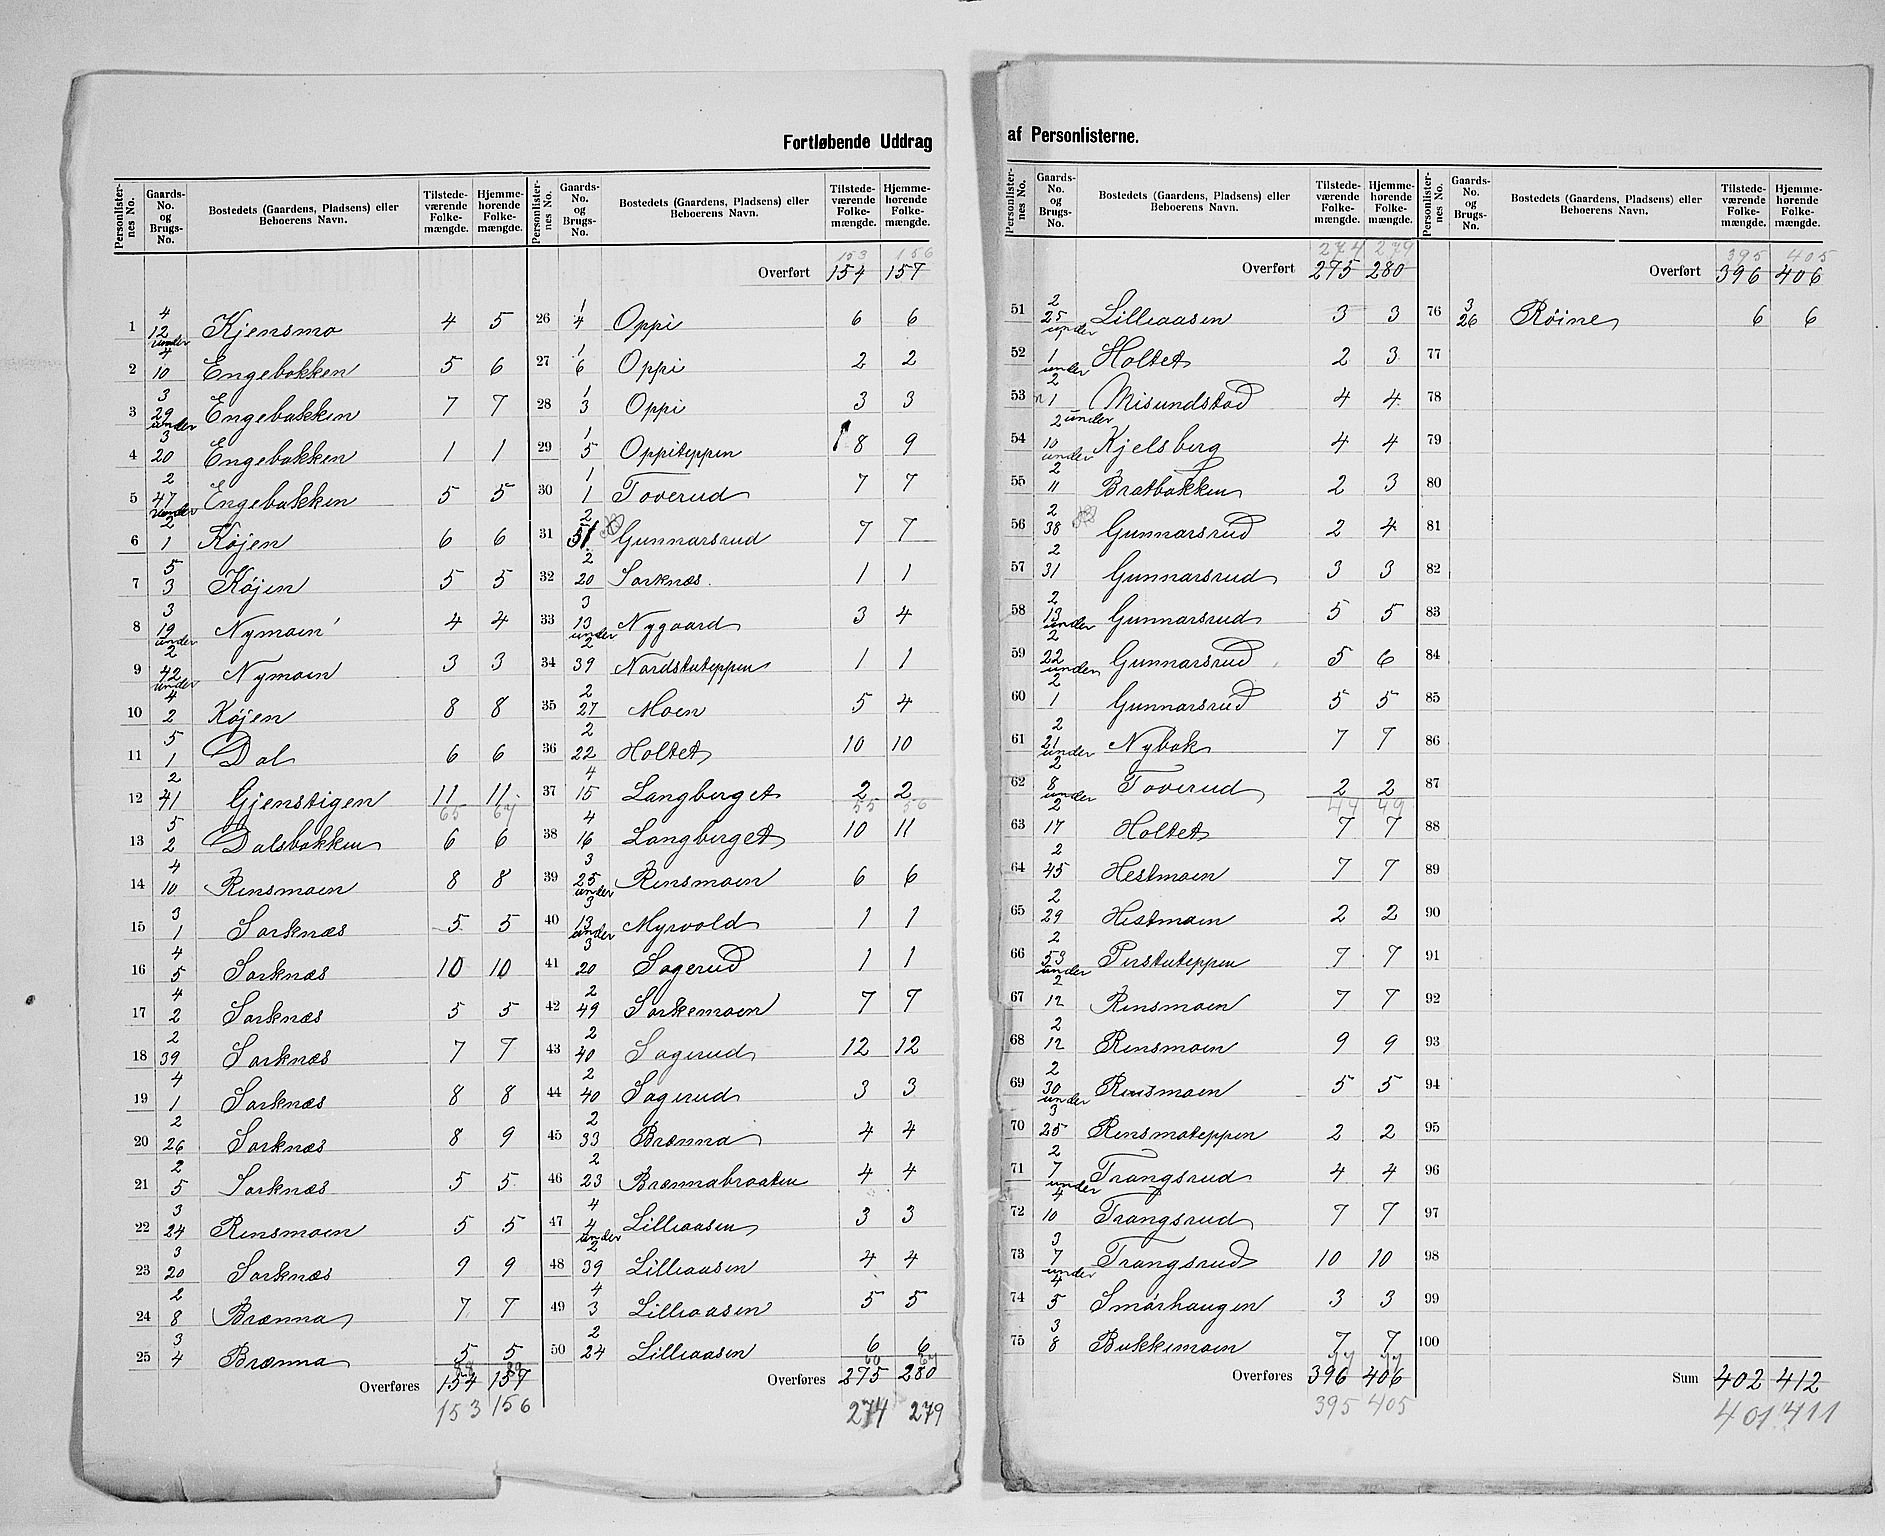 Fortløbende Uddrag
Personlister-nes No. | Gaards-No. og Brugs-No. | Bostedets (Gaardens, Pladsens) eller Beboerens Navn. | Tilstede-værende Folke-mængde. | Hjemme-hørende Folke-mængde.
1 | 4 12 under | Kjensmo | 4 | 5
2 | 4 10 | Engebakken | 5 | 6
3 | 3 29 under | Engebakken | 7 | 7
4 | 3 20 | Engebakken | 1 | 1
5 | 2 47 under | Engebakken | 5 | 5
6 | 2 1 | Køjen | 6 | 6
7 | 5 3 | Køjen | 5 | 5
8 | 3 19 under | Nymoen | 4 | 4
9 | 2 42 under | Nymoen | 3 | 3
10 | 4 2 | Køjen | 8 | 8
11 | 5 1 | Dal | 6 | 6
12 | 2 41 | Gjenstigen | 11 | 11
65 67
13 | 5 2 | Dalsbakken | 6 | 6
14 | 4 10 | Rensmoen | 8 | 8
15 | 3 1 | Sorknæs | 5 | 5
16 | 4 5 | Sorknæs | 10 | 10
17 | 4 2 | Sorknæs | 5 | 5
18 | 2 39 | Sorknæs | 7 | 7
19 | 4 1 | Sorknæs | 8 | 8
20 | 2 26 | Sorknæs | 8 | 9
21 | 2 5 | Sorknæs | 5 | 5
22 | 3 24 | Rensmoen | 5 | 5
23 | 3 20 | Sorknæs | 9 | 9
24 | 2 8 | Brænna | 7 | 7
25 | 3 4 | Brænna | 5 | 5
88 89
Overføres 154 157
153 156
Personlister-nes No. | Gaards-No. og Brugs-No. | Bostedets (Gaardens, Pladsens) eller Beboerens Navn. | Tilstede-værende Folke-mængde. | Hjemme-hørende Folke-mængde.
153 156
Overført 154 157
26 | 1 4 | Oppi | 6 | 6
27 | 1 6 | Oppi | 2 | 2
28 | 1 3 | Oppi | 3 | 3
29 | 1 5 | Oppiteppen | 8 | 9
30 | 1 1 | Toverud | 7 | 7
31 | 2 51 | Gunnarsrud | 7 | 7
32 | 2 20 | Sorknæs. | 1 | 1
33 | 3 13 under | Nygaard | 3 | 4
34 | 2 39 | Nordstuteppen | 1 | 1
35 | 2 27 | Moen | 5 | 4
36 | 2 22 | Holtet | 10 | 10
37 | 4 15 | Langberget | 2 | 2
55 56
38 | 4 16 | Langberget | 10 | 11
39 | 3 25 under | Rensmoen | 6 | 6
40 | 3 13 under | Myrvold | 1 | 1
41 | 3 20 | Sagerud | 1 | 1
42 | 2 49 | Sorkemoen | 7 | 7
43 | 2 40 | Sagerud | 12 | 12
44 | 2 40 | Sagerud | 3 | 3
45 | 2 33 | Brænna | 4 | 4
46 | 2 23 | Brænnabraaten | 4 | 4
47 | 4 4 under | Lilleaasen | 3 | 3
48 | 2 39 | Lilleaasen | 4 | 4
49 | 4 3 | Lilleaasen | 5 | 5
50 | 2 24 | Lilleaasen | 6 | 6
Overføres 275 280
274 279
af Personlisterne.
Personlister-nes No. | Gaards-No. og Brugs-No. | Bostedets (Gaardens, Pladsens) eller Beboerens Navn. | Tilstede-værende Folke-mængde. | Hjemme-hørende Folke-mængde.
274 279
Overført 275 280
51 | 2 25 under | Lilleaasen | 3 | 3
52 | 1 under | Holtet | 2 | 3
53 | 2 1 | Misundstad | 4 | 4
54 | 2 under 10 under | Kjelsberg | 4 | 4
55 | 2 11 | Bratbakken | 2 | 3
56 | 2 38 | Gunnarsrud | 2 | 4
57 | 2 31 | Gunnarsrud | 3 | 3
58 | 2 13 under | Gunnarsrud | 5 | 5
59 | 2 22 under | Gunnarsrud | 5 | 6
60 | 2 1 | Gunnarsrud | 5 | 5
61 | 2 21 under | Nybak | 7 | 7
62 | 2 8 under | Toverud | 2 | 2
44 49
63 | 2 17 | Holtet | 7 | 7
64 | 2 45 | Hestmoen | 7 | 7
65 | 2 29 | Hestmoen | 2 | 2
66 | 2 53 under | Perstuteppen | 7 | 7
67 | 2 12 | Rensmoen | 7 | 7
68 | 2 12 | Rensmoen | 9 | 9
69 | 2 30 under | Rensmoen | 5 | 5
70 | 3 25 | Rensmoteppen | 2 | 2
71 | 2 7 under | Trangsrud | 4 | 4
72 | 4 10 | Trangsrud | 7 | 7
73 | 3 7 under | Trangsrud | 10 | 10
74 | 4 5 | Smørhaugen | 3 | 3
75 | 3 8 | Bukkemoen | 7 | 7
77 77
Overføres 396 406
395 405
Personlister-nes No. | Gaards-No. og Brugs-No. | Bostedets (Gaardens, Pladsens) eller Beboerens Navn. | Tilstede-værende Folke-mængde. | Hjemme-hørende Folke-mængde.
395 405
Overført 396 406
76 | 3 26 | Røine | 6 | 6
77
78
79
80
81
82
83
84
85
86
87
88
89
90
91
92
93
94
95
96
97
98
99
100
Sum 402 412
401 411